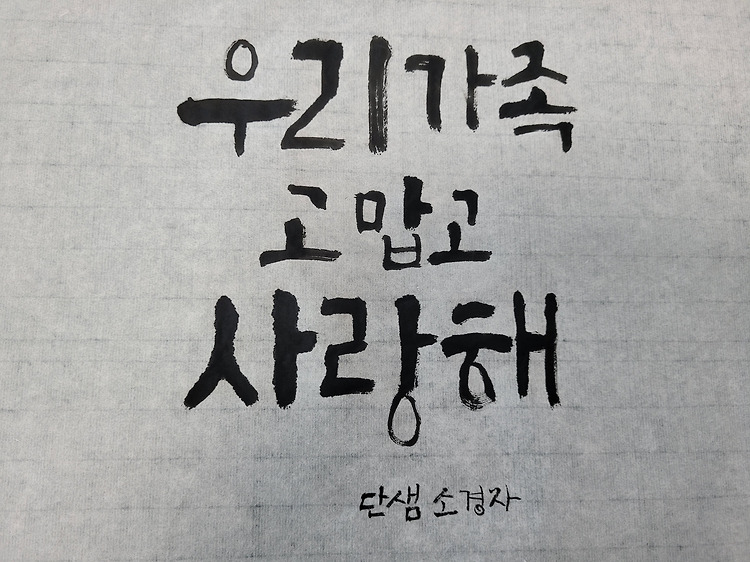 우리가족
고맙고
사랑해
단샘 소경자